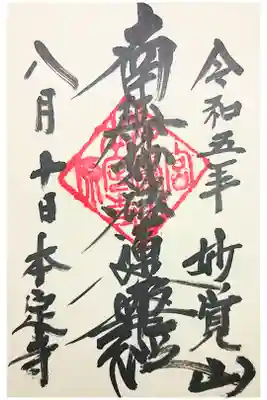 令和五年 妙覚山
南無妙法蓮華経
八月十日 本定寺